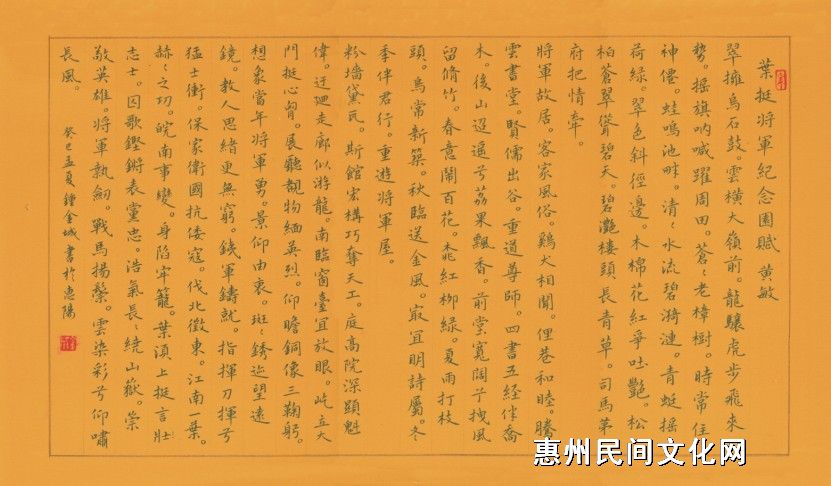 葉挺將軍紀念園賦 黃敏
翠擁烏石鼓。雲橫大嶺前。龍驤虎步飛來
勢。搖旗吶喊躍周田。蒼〻老樟樹。時常住
神僊。蛙鳴池畔。清〻水流碧漪漣。青蜓搖
荷綠。翠色斜徑邊。木棉花紅爭吐艷。松
柏蒼翠聳碧天。碧灔樓頭長青草。司馬第
府把情牽。
將軍故居。客家風俗。鷄犬相聞。俚巷和睦。騰
雲書堂。賢儒出谷。重道尊師。四書五經伴喬
木。後山迢遞兮荔果飄香。前堂寬闊子拽風
留脩竹。春意鬧百花。桃紅柳綠。夏雨打枝
頭。鳥常新築。秋臨送金風。寂宜明詩屬。冬
季伴君行。重遊將軍屋。
粉墻黛瓦。斯館宏構巧奪天工。庭高院深顯魁
偉。迂迴走廊似游龍。南臨窗臺宜放眼。屹立大
門挺心胸。展廳覩物緬英烈。仰瞻銅像三鞠躬。
想象當年將軍勇。景仰由衷。斑〻銹迹望遠
鏡。教人思緒更無窮。鐵軍鑄就。指揮刀揮兮
猛士衝。保家衛國抗倭寇。伐北徵東。江南一葉。
赫〻之功。皖南事變。身陷牢籠。葉湏上挺言壯
志士。囚歌鏗鏘表黨忠。浩氣長〻繞山嶽。崇
敬英雄。將軍執劍。戰馬揚鬃。雲染彩兮仰嘯
長風。
癸巳孟夏鍾金城書於惠陽
惠州民间文化网